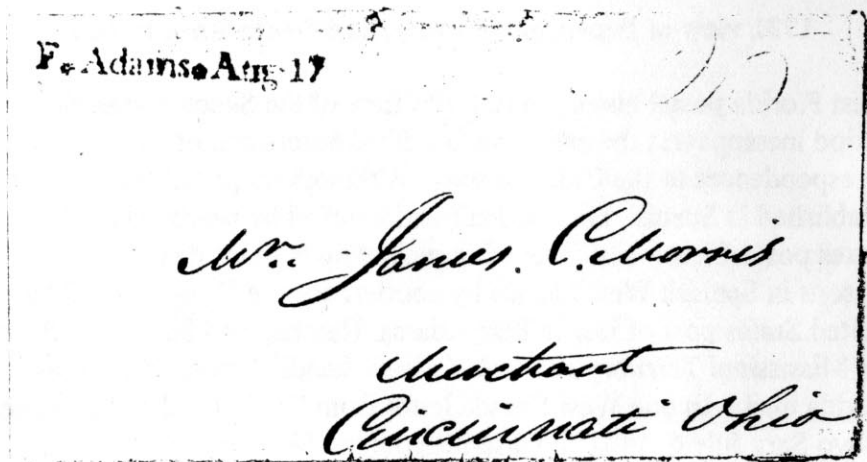 F. Adams. Aug 17
Mr. James. C. Morris
Merchant
Cincinnati Ohio